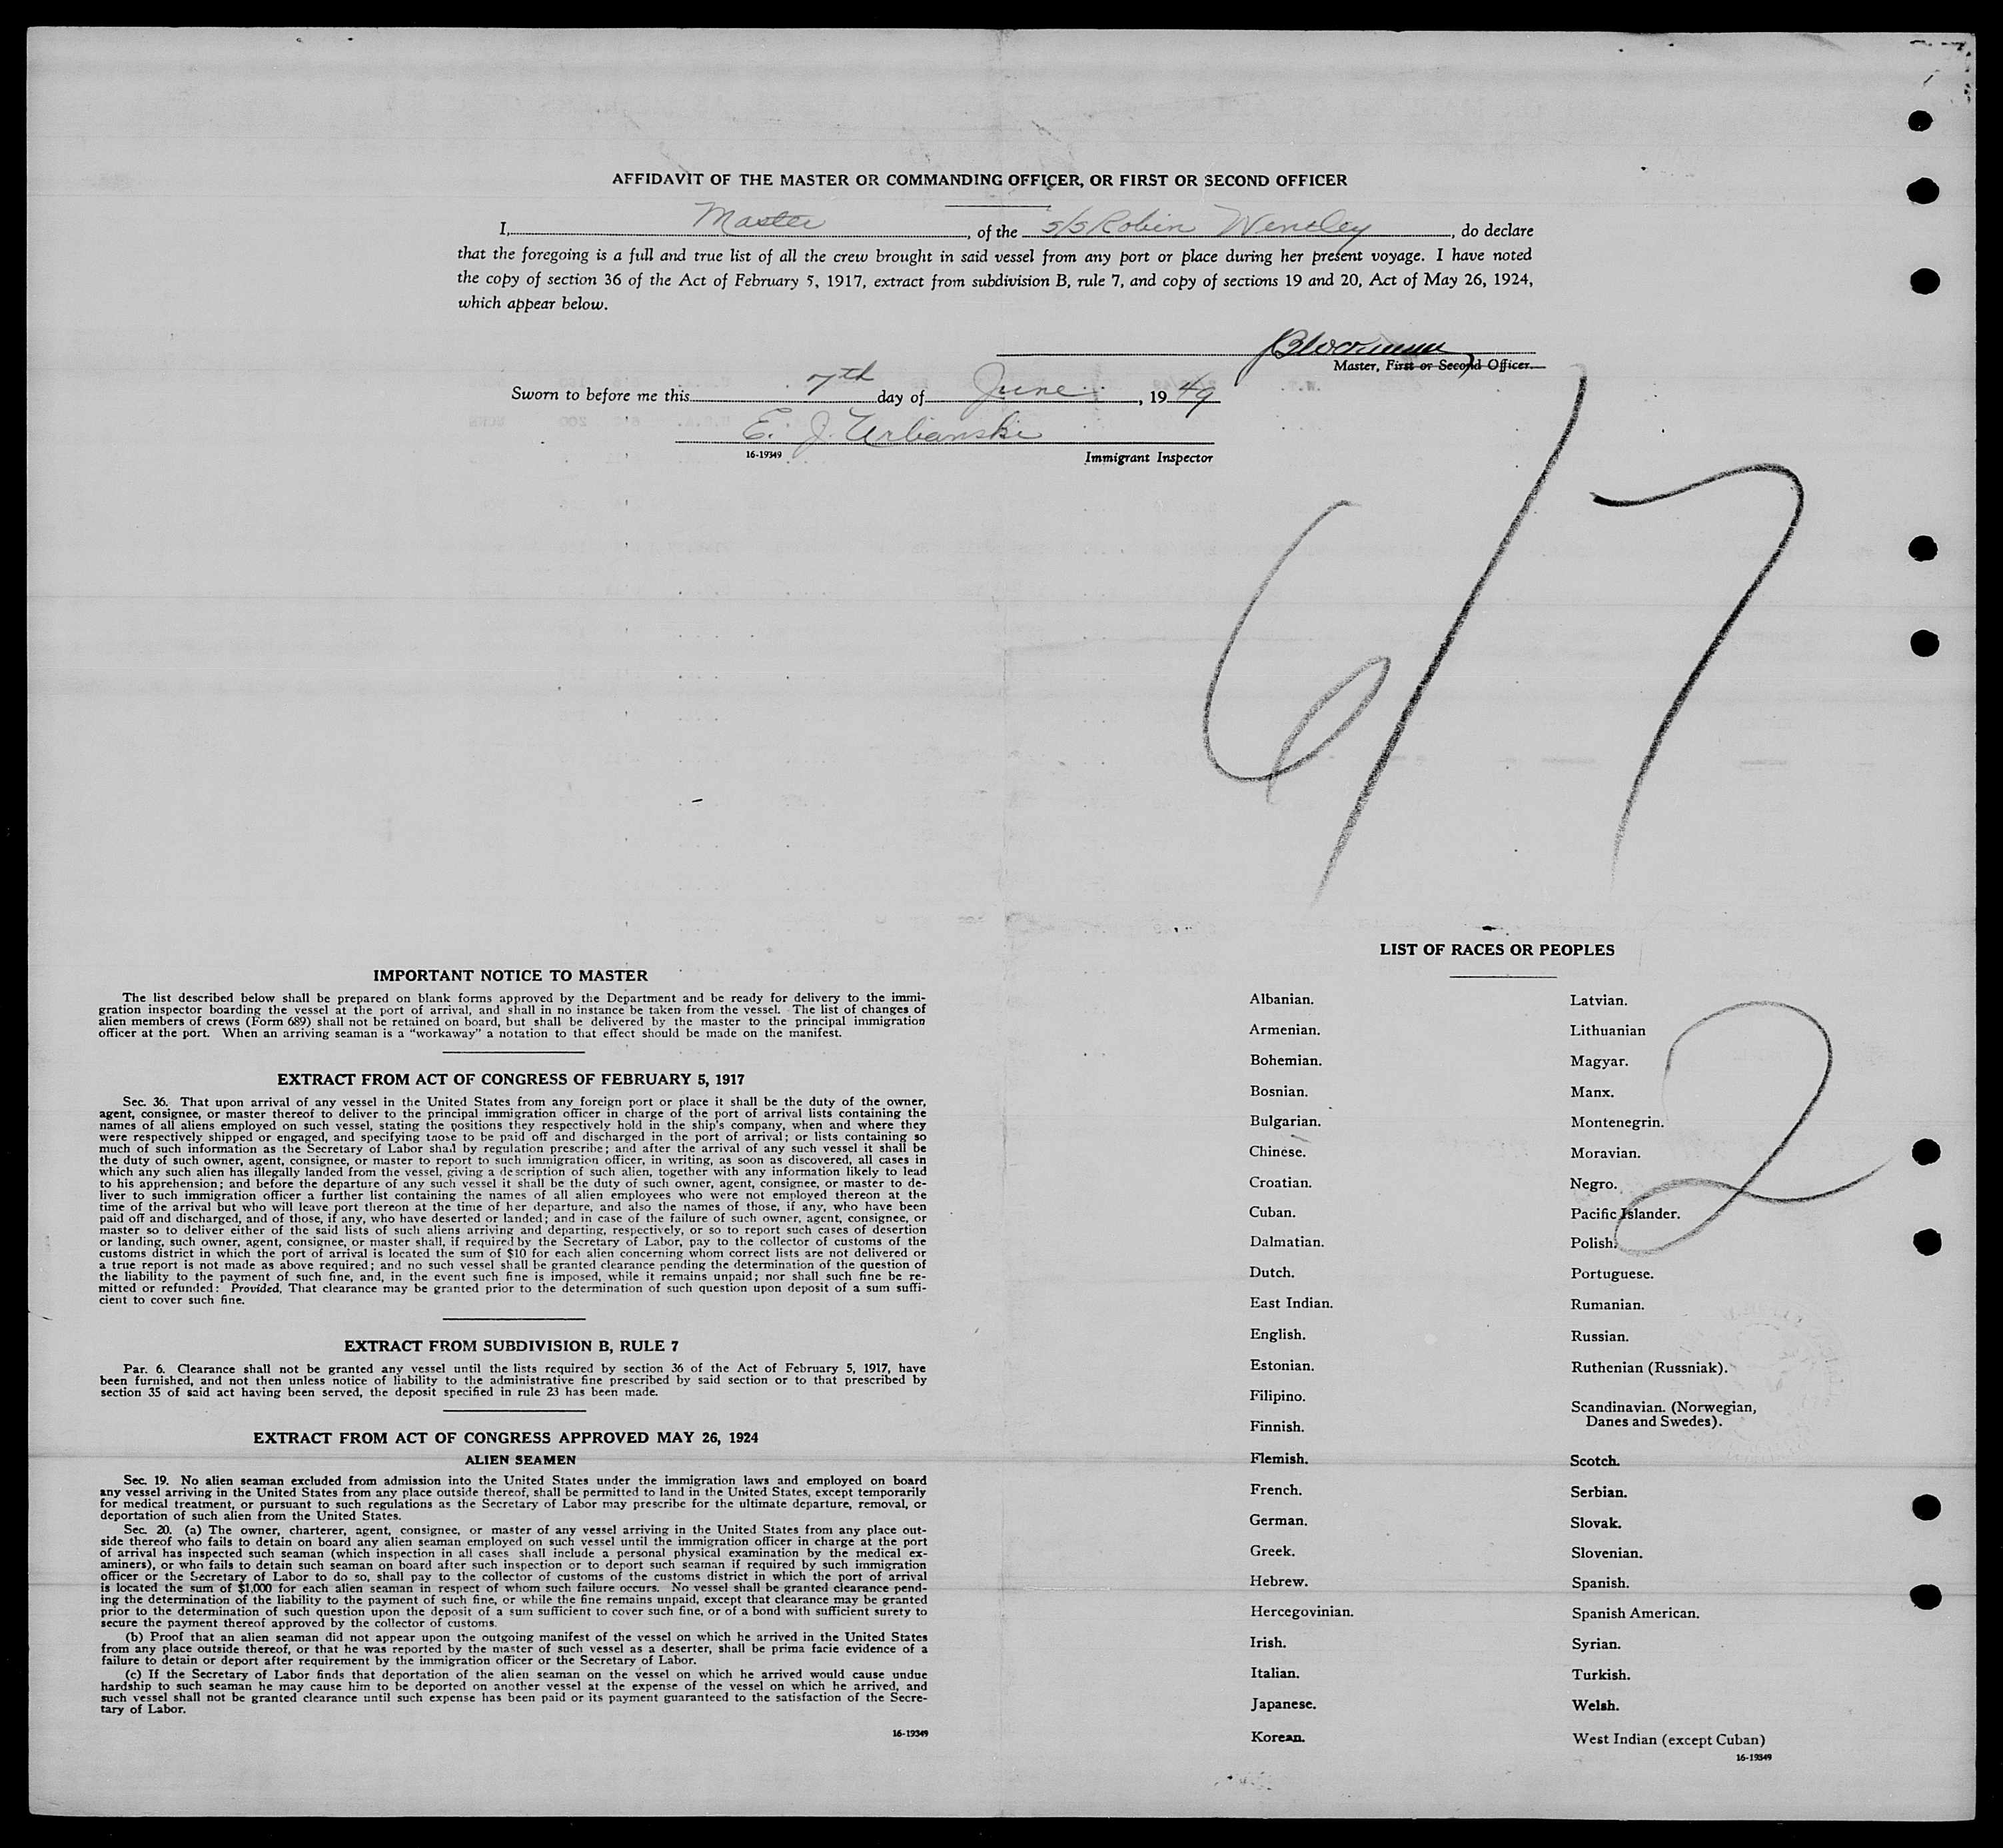 AFFIDAVIT OF THE MASTER OR COMMANDING OFFICER, OR FIRST OR SECOND OFFICER
I, Master, of the s/s Robin Wentley, do declare
that the foregoing is a full and true list of all the crew brought in said vessel from any port or place during her present voyage. I have noted
the copy of section 36 of the Act of February 5, 1917, extract from subdivision B, rule 7, and copy of sections 19 and 20, Act of May 26, 1924,
which appear below.
Master, First or Second Officer.
Sworn to before me this 7th day of June, 19 49
E. J. Urbanski
16-19349 Immigrant Inspector
6/7
IMPORTANT NOTICE TO MASTER
The list described below shall be prepared on blank forms approved by the Department and be ready for delivery to the immi-
gration inspector boarding the vessel at the port of arrival, and shall in no instance be taken from the vessel. The list of changes of
alien members of crews (Form 689) shall not be retained on board, but shall be delivered by the master to the principal immigration
officer at the port. When an arriving seaman is a "workaway" a notation to that effect should be made on the manifest.
EXTRACT FROM ACT OF CONGRESS OF FEBRUARY 5, 1917
Sec. 36. That upon arrival of any vessel in the United States from any foreign port or place it shall be the duty of the owner,
agent, consignee, or master thereof to deliver to the principal immigration officer in charge of the port of arrival lists containing the
names of all aliens employed on such vessel, stating the positions they respectively hold in the ship's company, when and where they
were respectively shipped or engaged, and specifying those to be paid off and discharged in the port of arrival; or lists containing so
much of such information as the Secretary of Labor shall by regulation prescribe; and after the arrival of any such vessel it shall be
the duty of such owner, agent, consignee, or master to report to such immigration officer, in writing, as soon as discovered, all cases in
which any such alien has illegally landed from the vessel, giving a description of such alien, together with any information likely to lead
to his apprehension; and before the departure of any such vessel it shall be the duty of such owner, agent, consignee, or master to de-
liver to such immigration officer a further list containing the names of all alien employees who were not employed thereon at the
time of the arrival but who will leave port thereon at the time of her departure, and also the names of those, if any, who have been
paid off and discharged, and of those, if any, who have deserted or landed; and in case of the failure of such owner, agent, consignee, or
master so to deliver either of the said lists of such aliens arriving and departing, respectively, or so to report such cases of desertion
or landing, such owner, agent, consignee, or master shall, if required by the Secretary of Labor, pay to the collector of customs of the
customs district in which the port of arrival is located the sum of $10 for each alien concerning whom correct lists are not delivered or
a true report is not made as above required; and no such vessel shall be granted clearance pending the determination of the question of
the liability to the payment of such fine, and, in the event such fine is imposed, while it remains unpaid; nor shall such fine be re-
mitted or refunded: Provided, That clearance may be granted prior to the determination of such question upon deposit of a sum suffi-
cient to cover such fine.
EXTRACT FROM SUBDIVISION B, RULE 7
Par. 6. Clearance shall not be granted any vessel until the lists required by section 36 of the Act of February 5, 1917, have
been furnished, and not then unless notice of liability to the administrative fine prescribed by said section or to that prescribed by
section 35 of said act having been served, the deposit specified in rule 23 has been made.
EXTRACT FROM ACT OF CONGRESS APPROVED MAY 26, 1924
ALIEN SEAMEN
Sec. 19. No alien seaman excluded from admission into the United States under the immigration laws and employed on board
any vessel arriving in the United States from any place outside thereof, shall be permitted to land in the United States, except temporarily
for medical treatment, or pursuant to such regulations as the Secretary of Labor may prescribe for the ultimate departure, removal, or
deportation of such alien from the United States.
Sec. 20. (a) The owner, charterer, agent, consignee, or master of any vessel arriving in the United States from any place out-
side thereof who fails to detain on board any alien seaman employed on such vessel until the immigration officer in charge at the port
of arrival has inspected such seaman (which inspection in all cases shall include a personal physical examination by the medical ex-
aminers), or who fails to detain such seaman on board after such inspection or to deport such seaman if required by such immigration
officer or the Secretary of Labor to do so, shall pay to the collector of customs of the customs district in which the port of arrival
is located the sum of $1,000 for each alien seaman in respect of whom such failure occurs. No vessel shall be granted clearance pend-
ing the determination of the liability to the payment of such fine, or while the fine remains unpaid, except that clearance may be granted
prior to the determination of such question upon the deposit of a sum sufficient to cover such fine, or of a bond with sufficient surety to
secure the payment thereof approved by the collector of customs.
(b) Proof that an alien seaman did not appear upon the outgoing manifest of the vessel on which he arrived in the United States
from any place outside thereof, or that he was reported by the master of such vessel as a deserter, shall be prima facie evidence of a
failure to detain or deport after requirement by the immigration officer or the Secretary of Labor.
(c) If the Secretary of Labor finds that deportation of the alien seaman on the vessel on which he arrived would cause undue
hardship to such seaman he may cause him to be deported on another vessel at the expense of the vessel on which he arrived, and
such vessel shall not be granted clearance until such expense has been paid or its payment guaranteed to the satisfaction of the Secre-
tary of Labor.
16-19349
LIST OF RACES OR PEOPLES
Albanian.
Armenian.
Bohemian.
Bosnian.
Bulgarian.
Chinese.
Croatian.
Cuban.
Dalmatian.
Dutch.
East Indian.
English.
Estonian.
Filipino.
Finnish.
Flemish.
French.
German.
Greek.
Hebrew.
Hercegovinian.
Irish.
Italian.
Japanese.
Korean.
Latvian.
Lithuanian
Magyar.
Manx.
Montenegrin.
Moravian.
Negro.
Pacific Islander.
Polish.
Portuguese.
Rumanian.
Russian.
Ruthenian (Russniak).
Scandinavian. (Norwegian,
Danes and Swedes).
Scotch.
Serbian.
Slovak.
Slovenian.
Spanish.
Spanish American.
Syrian.
Turkish.
Welsh.
West Indian (except Cuban)
16-19349
2